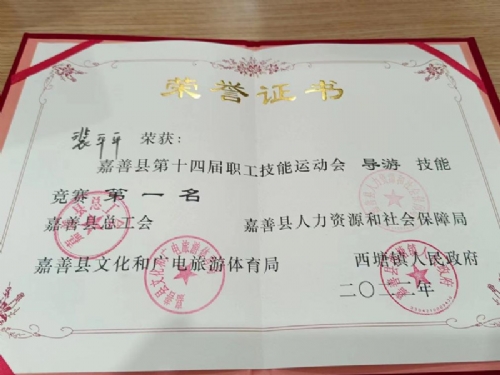 荣誉证书
裴平平 荣获:
嘉善县第十四届职工技能运动会 导游 技能
竞赛 第一名
嘉善县总工会 嘉善县人力资源和社会保障局
嘉善县文化和广电旅游体育局 西塘镇人民政府
二〇二二年